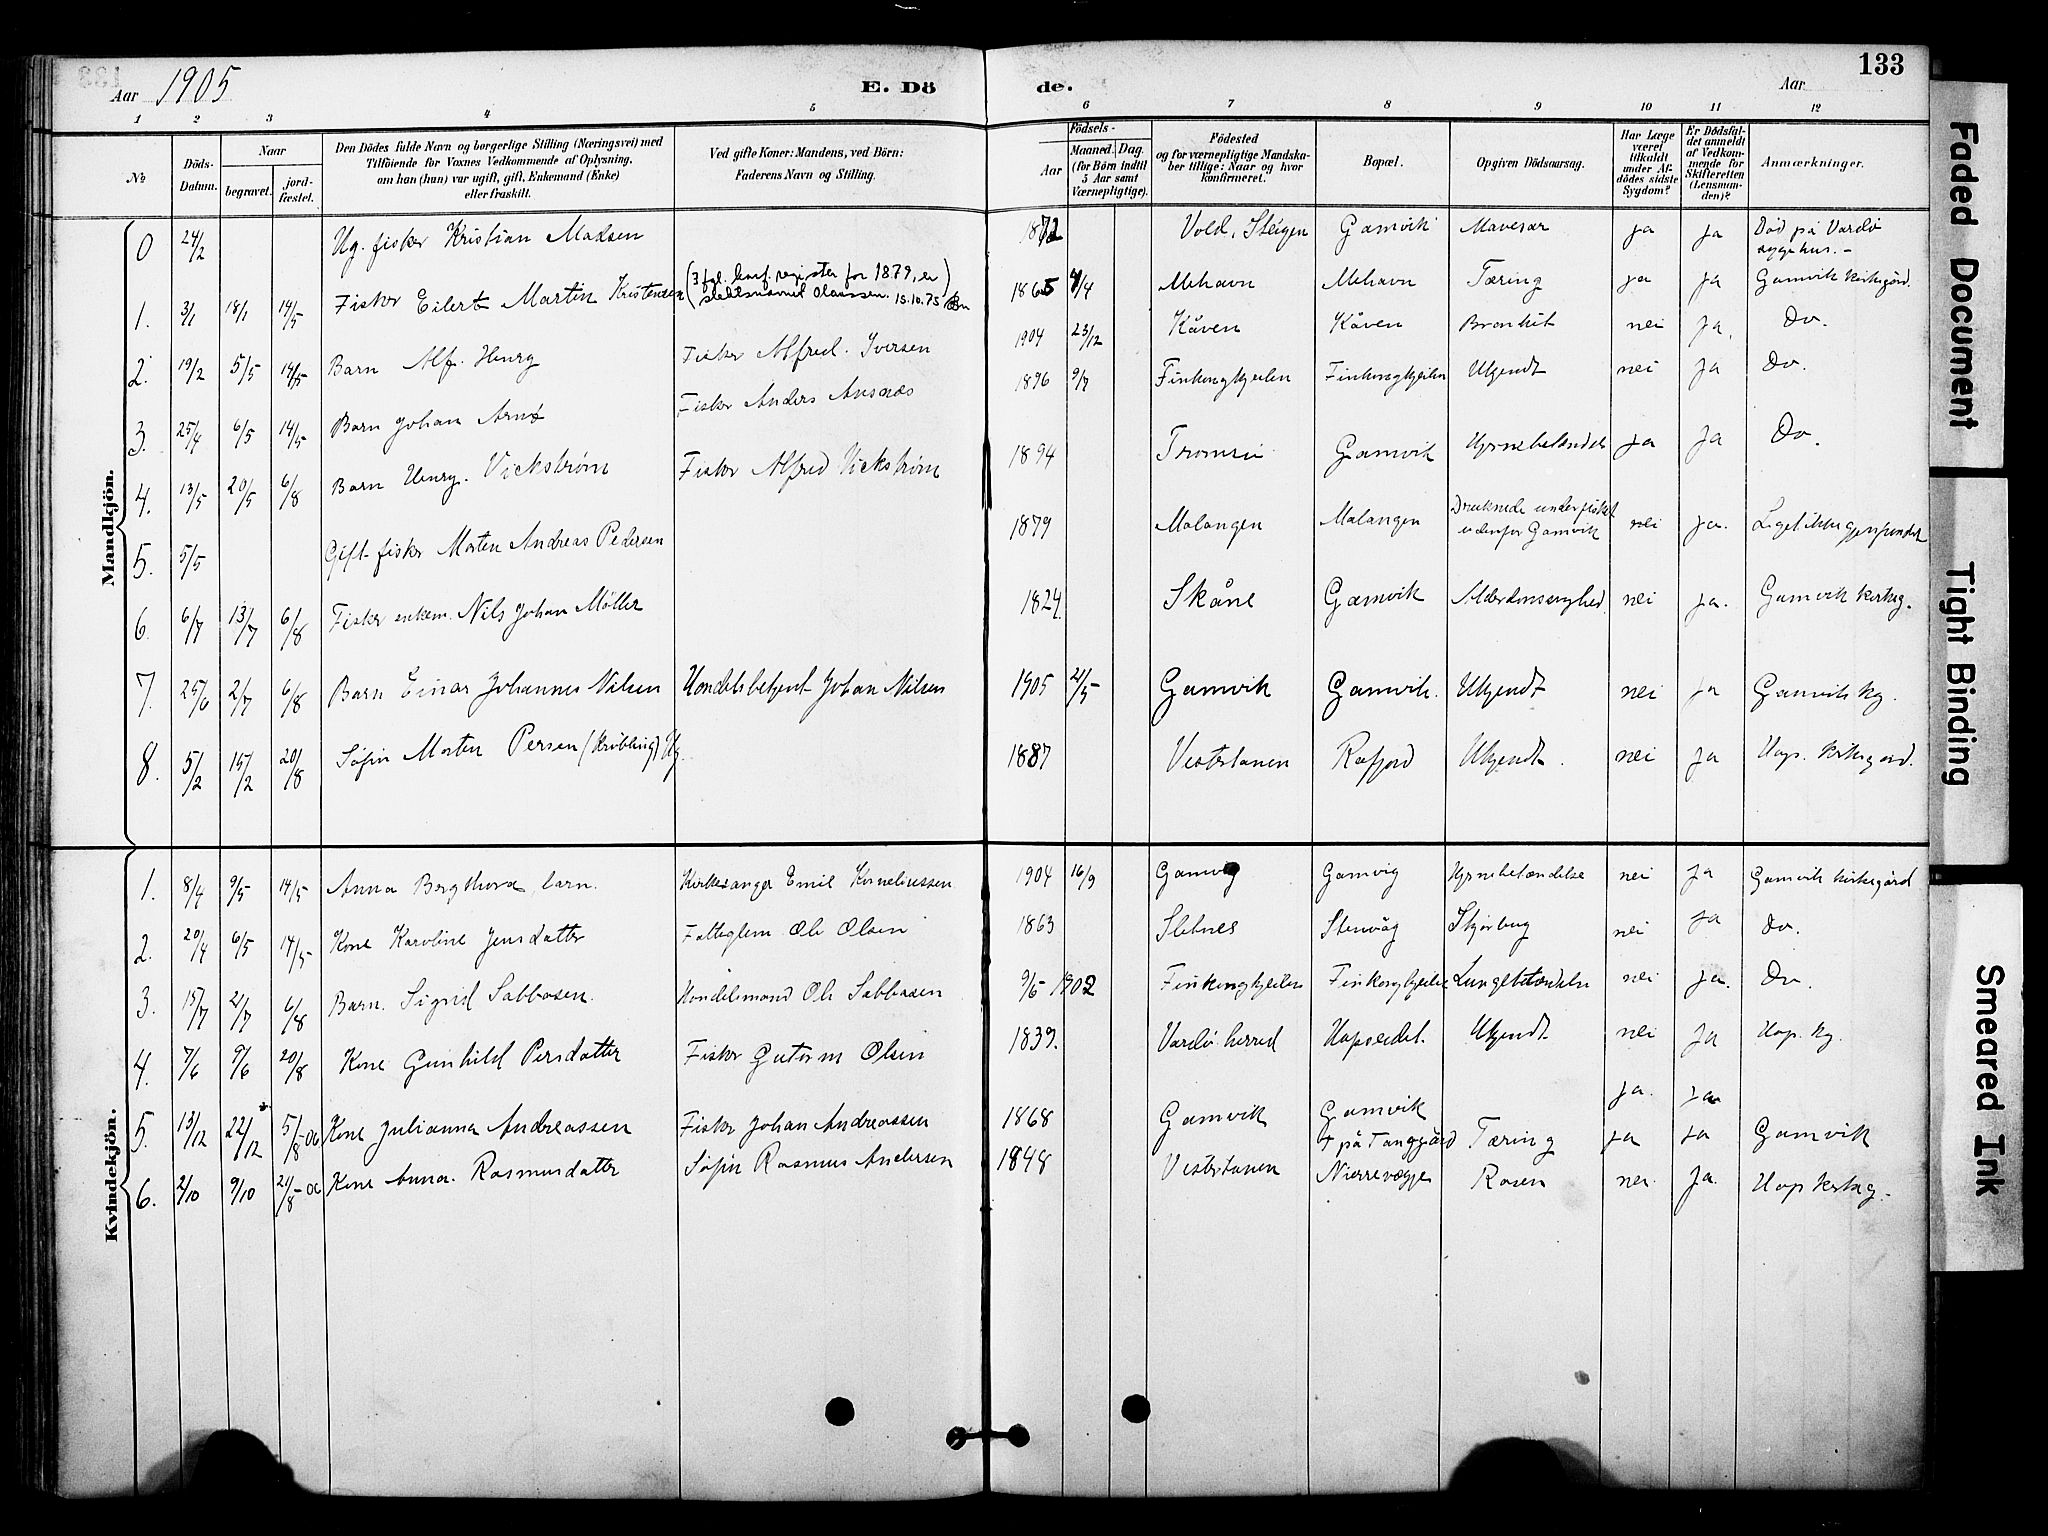 133
Aar 1905 E. Döde. Aar
1 2 3 4 5 6 7 8 9 10 11 12
№
Döds-Datum.
Naar
begravet.
jord-fæstet.
Den Dödes fulde Navn og borgerlige Stilling (Næringsvei) med
Tilföiende for Voxnes Vedkommende af Oplysning,
om han (hun) var ugift, gift, Enkemand (Enke)
eller fraskilt.
Ved gifte Koner: Mandens, ved Börn:
Faderens Navn og Stilling.
Födsels-
Aar
Maaned. Dag.
(for Börn indtil
5 Aar samt
Værnepligtige).
Födested
og for værnepligtige Mandska-
ber tillige: Naar og hvor
konfirmeret.
Bopæl.
Opgiven Dödsaarsag.
Har Læge
været
tilkaldt
under Af-
dödes sidste
Sygdom?
Er Dödsfal-
det anmeldt
af Vedkom-
mende for
Skifteretten
(Lensman-
den)?
Anmærkninger.
Mandkjön.
0 24/2 Ug. fisker Kristian Madsen 1872 Vold, Steigen Gamvik Mavesår ja ja Død på Vardö sygehus.-
1. 3/1 18/1 14/5 Fisker Eilert Martin Kristensen (Ifgl. konf. register for 1879, er slektsnavnet Olaussen. 15.10.75) 1865 4/4 Mehavn Mehavn Tæring ja ja Gamvik kirkegård.
2. 19/2 5/5 14/5 Barn Alf. Henry Fisker Alfred. Iversen 1904 23/12 Kåven Kåven Bronkit nei ja. Do.
3. 25/4 6/5 14/5 Barn Johan Arnø Fisker Anders Ansnæs 1896 9/7 Finkongkjeilen Finkongkjeilen Ukjendt nei ja Do.
4. 13/5 20/5 6/8 Barn Henry. Vickstrøm Fisker Alfred Vickstrøm 1894 Tromsö Gamvik Hjernebetændelse ja ja Do.
5. 5/5 Gift fisker Morten Andreas Pedersen 1879 Malangen Malangen Druknede under fisket udenfor Gamvik nei ja. Liget ikke gjenfundet
6. 6/7 13/7 6/8 Fisker enkem. Nils Johan Möller 1824. Skåne Gamvik Alderdomssvaghed nei ja. Gamvik kirkeg.
7. 25/6 2/7 6/8 Barn Einar Johannes Nilsen Handelsbetjent Johan Nilsen 1905 2/5 Gamvik Gamvik. Ukjendt nei ja Gamvik kg.
8. 5/2 15/2 20/8 Søfin Morten Persen (Krøbling) Ug. 1887 Vestertanen Ukjendt. nei ja Hop. kirkegård.
Kvindekjön.
1. 8/4 9/5 14/5 Anna Bergthora, barn. Kirkesanger Emil Korneliussen 1904 16/9 Gamvig Gamvig Hjernebetændelse nei ja Gamvik kirkegård
2. 20/4 6/5 14/5 Kone Karoline Jensdatter Fatteglem Ole Olsen 1863 Sletnes Stenvåg Skjørbug nei ja Do.
3. 15/7 2/7 6/8 Barn. Sigrid Sabbasen. Handelsmand Ole Sabbasen 9/5 1902 Finkongkjeilen Finkongkjeilen Lungebetændelse nei ja. Do.
4. 7/6 9/6 20/8 Kone Gunhild Persdatter Fisker Gutorm Olsen 1839. Vardö herred Hopseidet. Ukjendt nei ja Hop. kg.
ja. ja
5. 13/12 22/12 5/8-06 Kone Julianna Andreassen Fisker Johan Andreassen 1868 Gamvik Gamvik † på Tanggård Tæring ja ja Gamvik
6. 2/10 9/10 21/8-06 Kone Anna. Rasmusdatter Søfin Rasmus Andersen 1848 Vestertanen Nierrevægge Rosen nei ja. Hop kirkeg.
Faded Document
Tight Binding
Smeared Ink